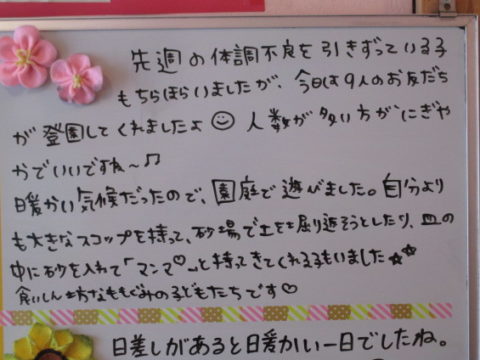 先週の体調不良を引きずっている子
もちらほらいましたが、今日は9人のお友だち
が登園してくれましたよ☺ 人数が多い方がにぎや
かでいいですね〜♫
暖かい気候だったので、園庭で遊びました。自分より
も大きなスコップを持って、砂場で土を掘り返そうとしたり、皿の
中に砂を入れて「マンマ♡」と持ってきてくれる子もいました☆☆
食いしん坊なももぐみの子どもたちです♡
日差しがあると暖かい一日でしたね。